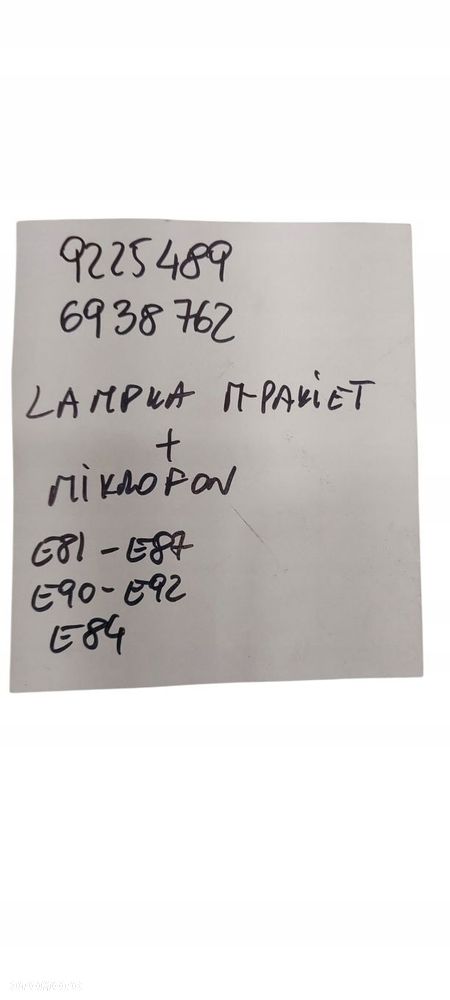 9225489
6938762
LAMPKA M-PAKiET
+
MiKROFON
E81-E87
E90-E92
E84